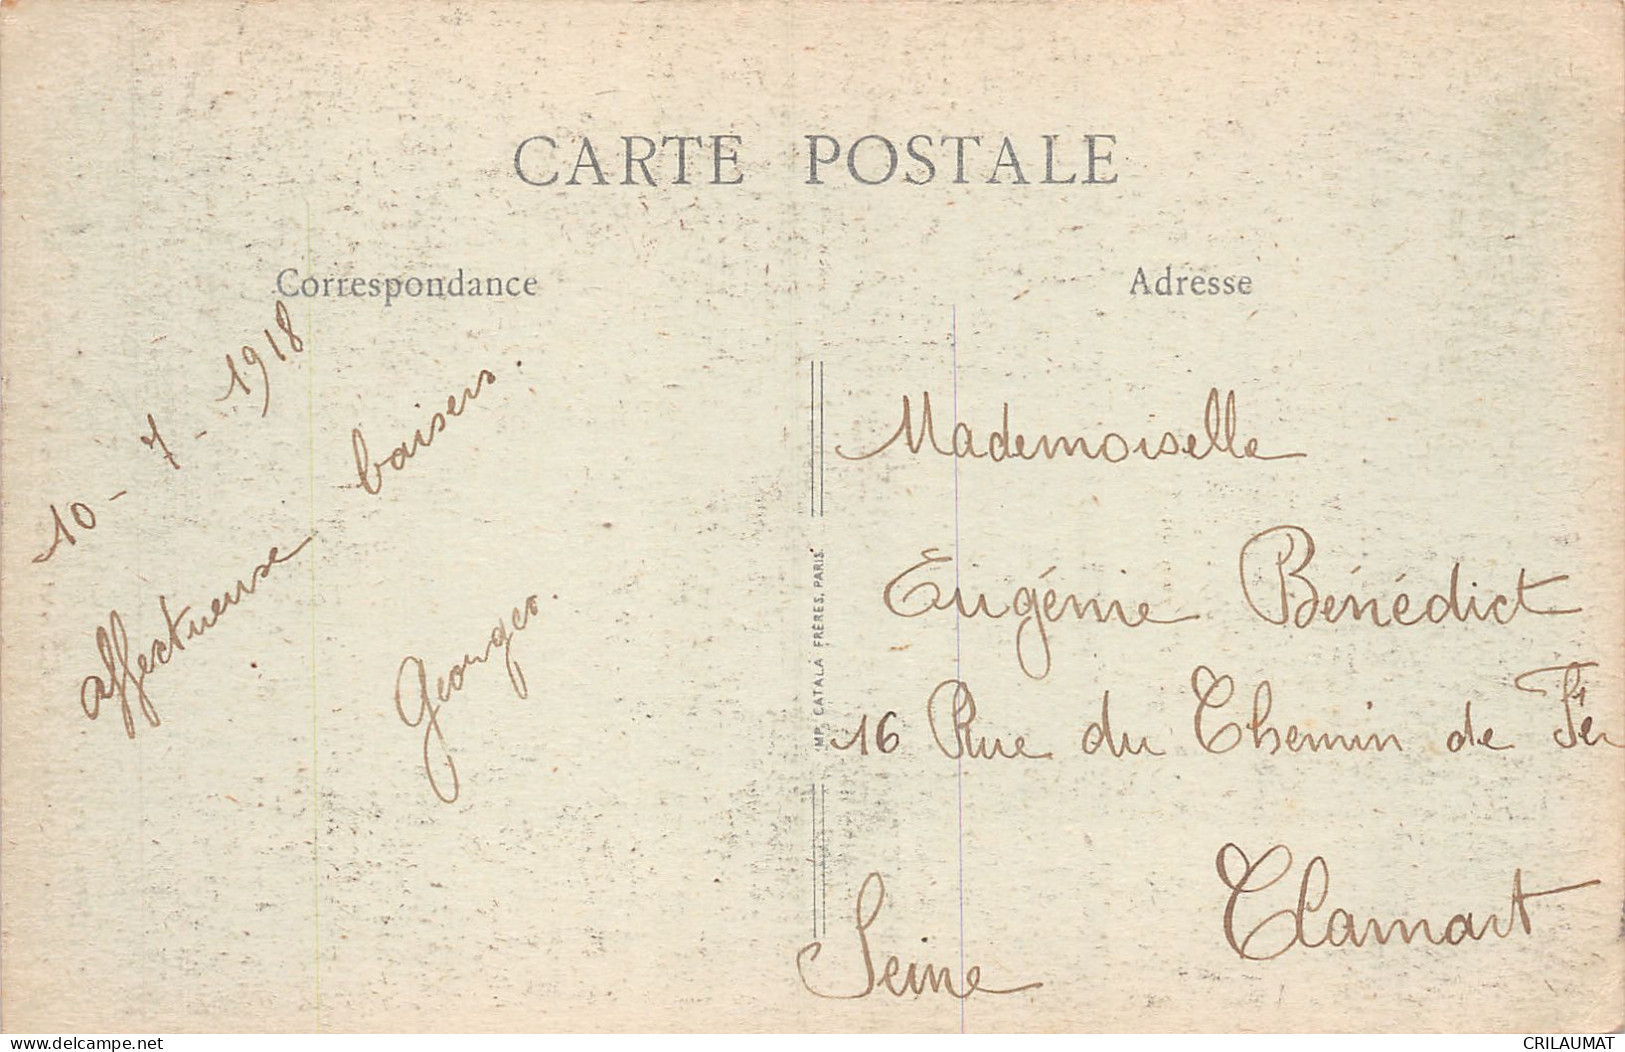 CARTE POSTALE
Correspondance
Adresse
10-7-1918
affectueuse baisers.
Georges.
IMP. CATALA FRÈRES, PARIS
Mademoiselle
Eugénie Bénédict
16 Rue du Chemin de Fer
Clamart
Seine
delcampe.net
CRILAUMAT